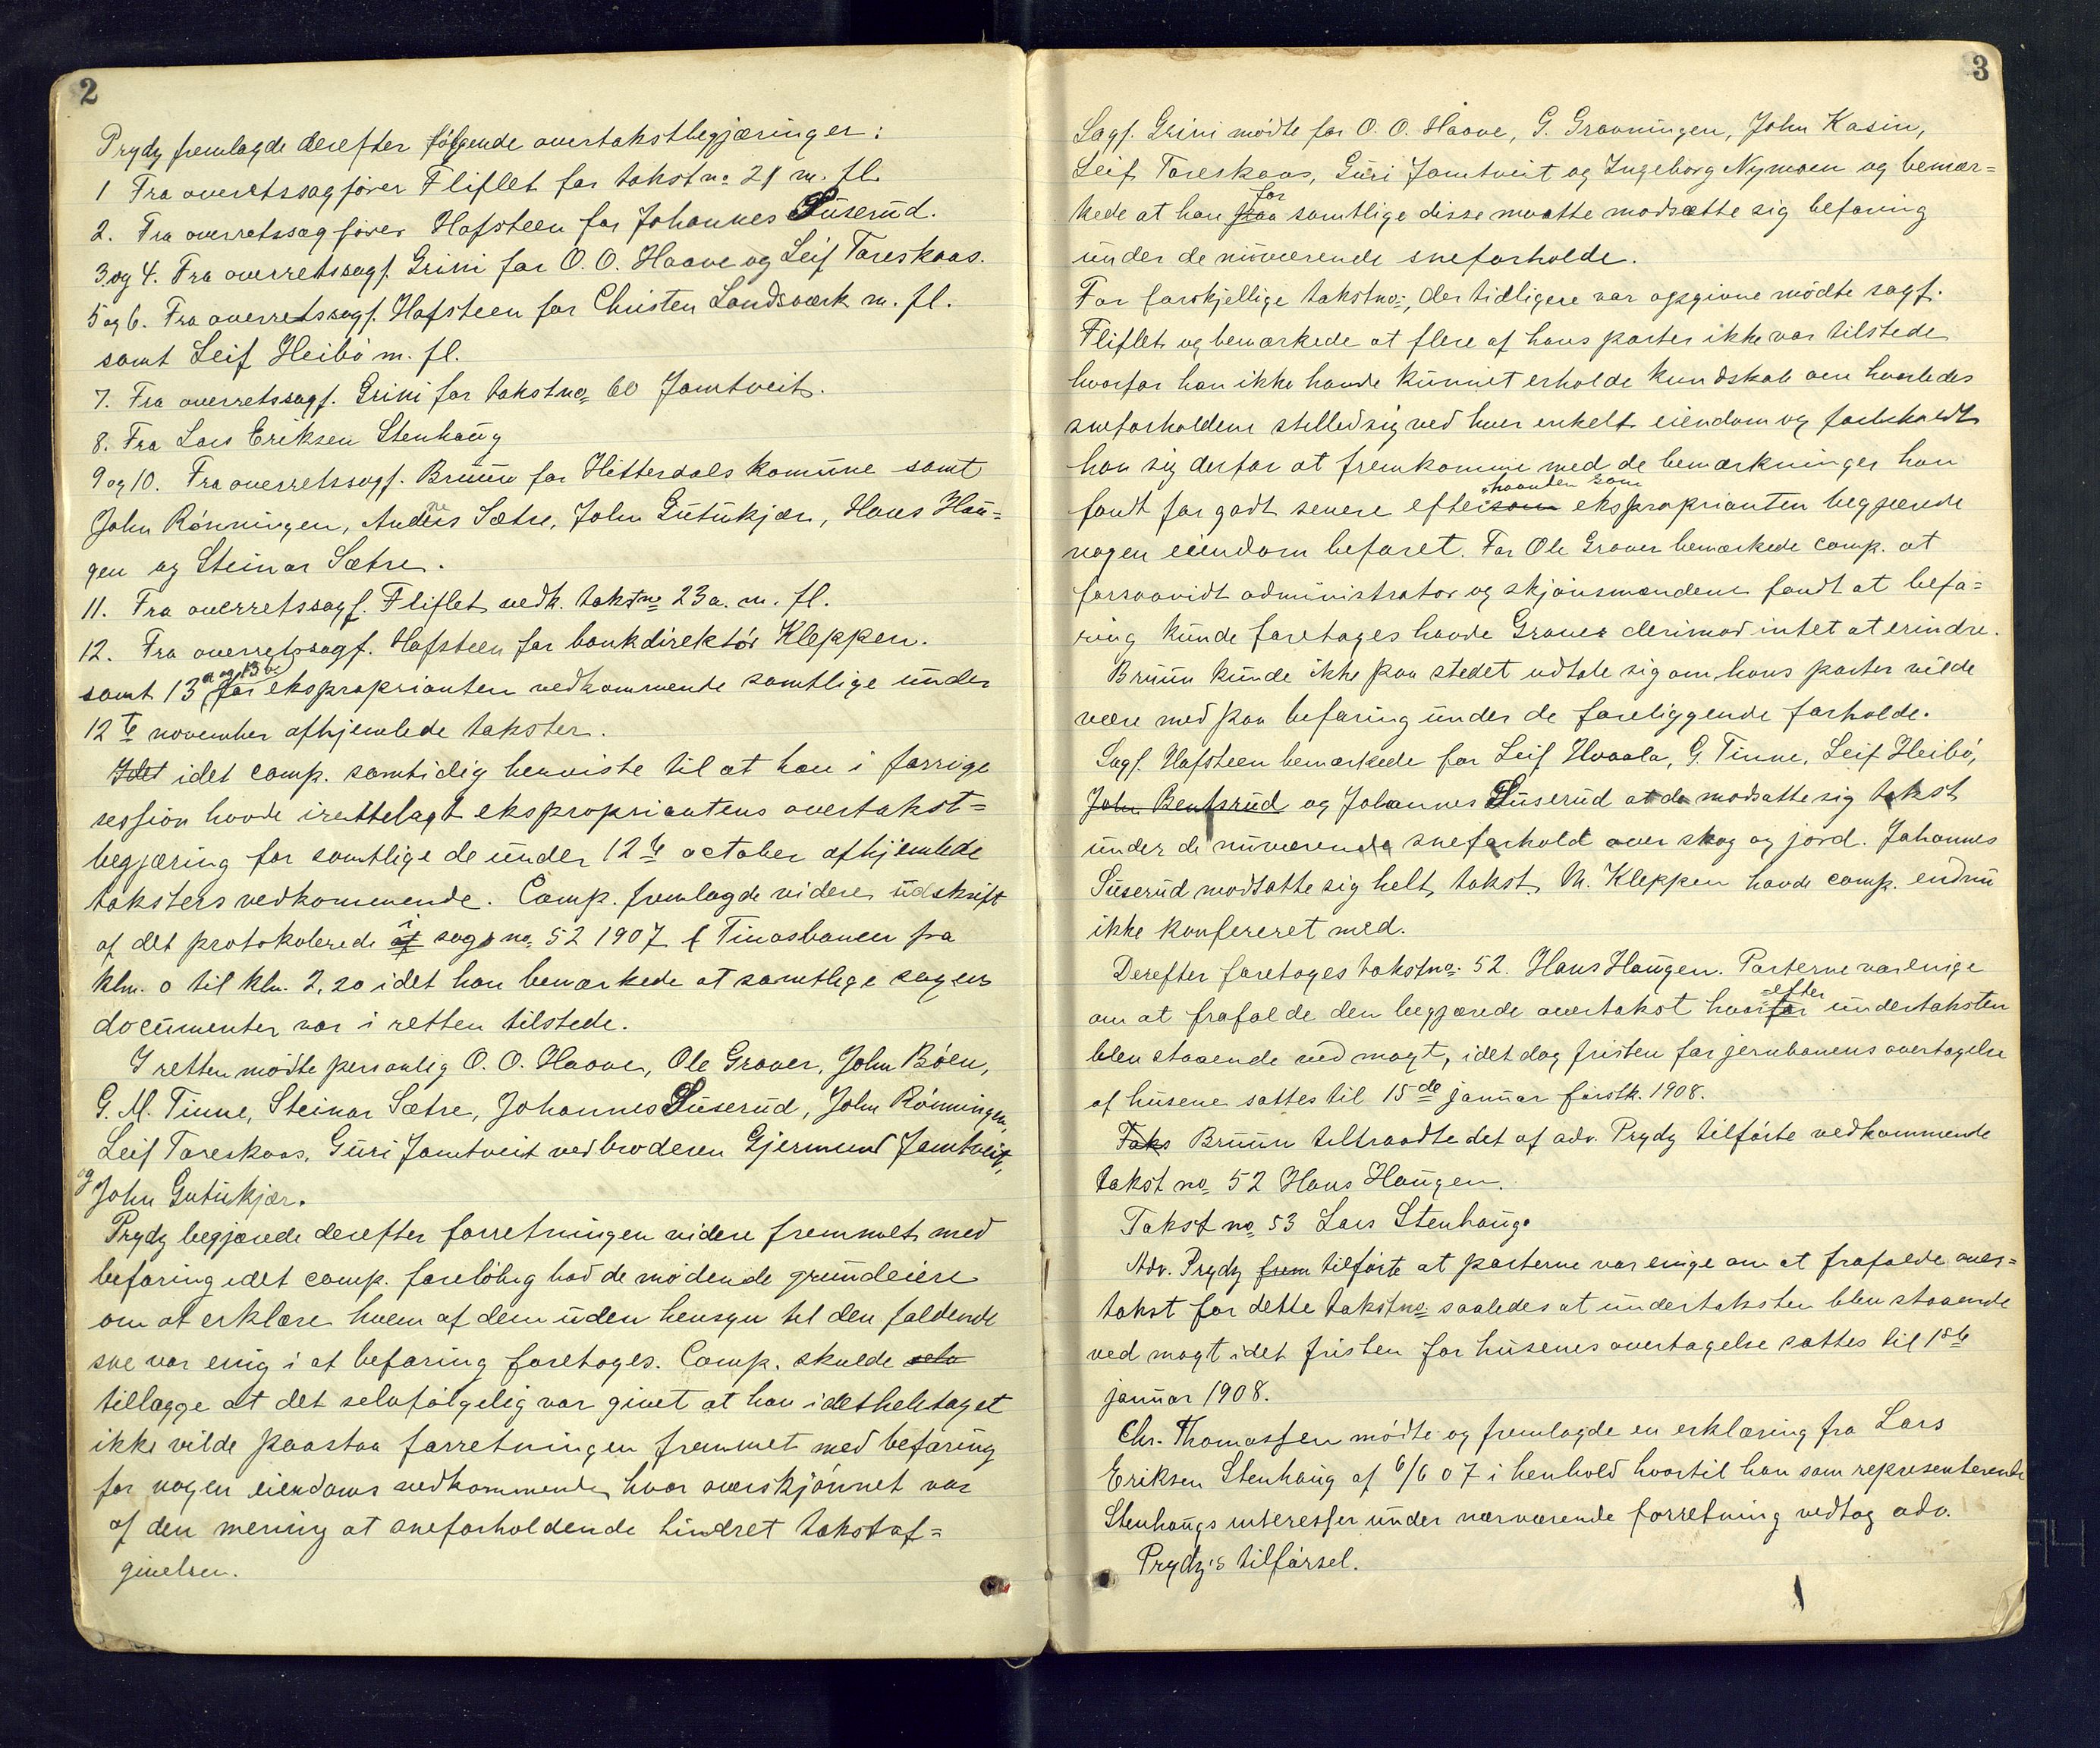 2
Prydz fremlagde derefter følgende overtakstbegjæringer:
1 Fra overetssagfører Fliflet for takst no 21 m. fl.
2. Fra overretssagfører Hofsteen for Johannes Suserud.
3 og 4. Fra overretssagf. Grini for O. O. Haave og Leif Tareskaas.
5 og 6. Fra overretssagf. Hofsteen for Christen Landsværk m. fl.
samt Leif Heibø m. fl.
7. Fra overretssagf. Grini for takst no 60 Jamtveit.
8. Fra Lars Eriksen Stenhaug
9 og 10. Fra overretssagf. Bruun for Hitterdals komune samt
John Rønningen, Anders Sætre, John Gutukjær, Hans Hau=
gen og Steinar Sætre.
11. Fra overretssagf. Fliflet vedk. takst no 23a. m. fl.
12. Fra overretssagf. Hofsteen for bankdirektør Kleppen.
samt 13 a og 13 b for eksproprianten vedkommende samtlige under
12te november afhjemlede takster.
Idet idet comp. samtidig henviste til at han i forrige
session havde irettelagt eksproprianten​s overtakst=
begjæring for samtlige de under 12te october afhjemlede
taksters vedkommende. Comp. fremlagde videre udskrift
af det protokolerede af i sag no. 52 1907 f Tinosbanen fra
klm. 0 til klm. 2,20 idet han bemærkede at samtlige sagens
documenter var i retten tilstede.
I retten mødte personlig O. O. Haave, Ole Graver, John Bøen,
G. M. Tinne, Steinar Sætre, Johannes Suserud, John Rønningen,
Leif Tareskaas, Guri Jamtveit ved broderen Gjermund Jamtveit,
og John Gutukjær.
Prydz begjærede derefter forretningen videre fremmet med
befaring idet comp. foreløbig bad de mødende grundeiere
om at erklære hvem af dem uden hensyn til den faldende
sne var enig i at befaring foretages. Comp. skulde selv
tillægge at det selvfølgelig var givet at han idetheletaget
ikke vilde paastaa forretningen fremmet med befaring
for nogen eiendoms vedkommende hvor overskjønnet var
af den mening at sneforholdende hindret takstaf=
givelsen.
3
Sagf. Grini mødte for O. O. Haave, G. Gravningen, John Kasin,
Leif Tareskaas, Guri Jamtveit og Ingeborg Nymoen og bemær=
kede at han paa for samtlige disse maatte modsætte sig befaring
under de nuværende sneforholde.
For forskjellige takstno:, der tidligere var opgivne mødte sagf.
Fliflet og bemærkede at flere af hans parter ikke var tilstede
hvorfor han ikke havde kunnet erholde kundskab om hvorledes
sneforholdene stilled sig ved hver enkelt eiendom og forbeholdt
han sig derfor at fremkomme med de bemærkninger han
fandt for godt senere eftersom =haanden som eksproprianten begjærede
nogen eiendom befaret. For Ole Graver bemærkede comp. at
forsaavidt administrator og skjønsmændene fandt at befa=
ring kunde foretages havde Graver derimod intet at erindre.
Bruun kunde ikke paa stedet udtale sig om hans parter vilde
være med paa befaring under de foreliggende forholde.
Sagf. Hofsteen bemærkede for Leif Hvaala, G. Tinne, Leif Heibø,
John Bentsrud og Johannes Suserud at de modsatte sig takst
under de nuværende sneforhold over skog og jord. Johannes
Suserud modsatte sig helt takst. M. Kleppen havde comp. endnu
ikke konfereret med.
Derefter foretoges takst no. 52. Hans Haugen. Parterne var enige
om at frafalde den begjærede overtakst hvorfor =efter undertaksten
blev staaende ved magt, idet dog fristen for jernbanens overtagelse
af husene sattes til 15de januar førstk. 1908.
Taks Bruun tiltraadte det af adv. Prydz tilførte vedkommende
takst no 52 Hans Haugen.
Takst no 53 Lars Stenhaug.
Adv. Prydz frem tilførte at parterne var enige om at frafalde over=
takst for dette takstno. saaledes at undertaksten blev staaende
ved magt idet fristen for husenes overtagelse sattes til 1ste
januar 1908.
Chr. Thomassen mødte og fremlagde en erklæring fra Lars
Eriksen Stenhaug af 6/6 07 i henhold hvortil han som representerende
Stenhaugs interesser under nærværende forretning vedtog adv.
Prydz's tilførsel.